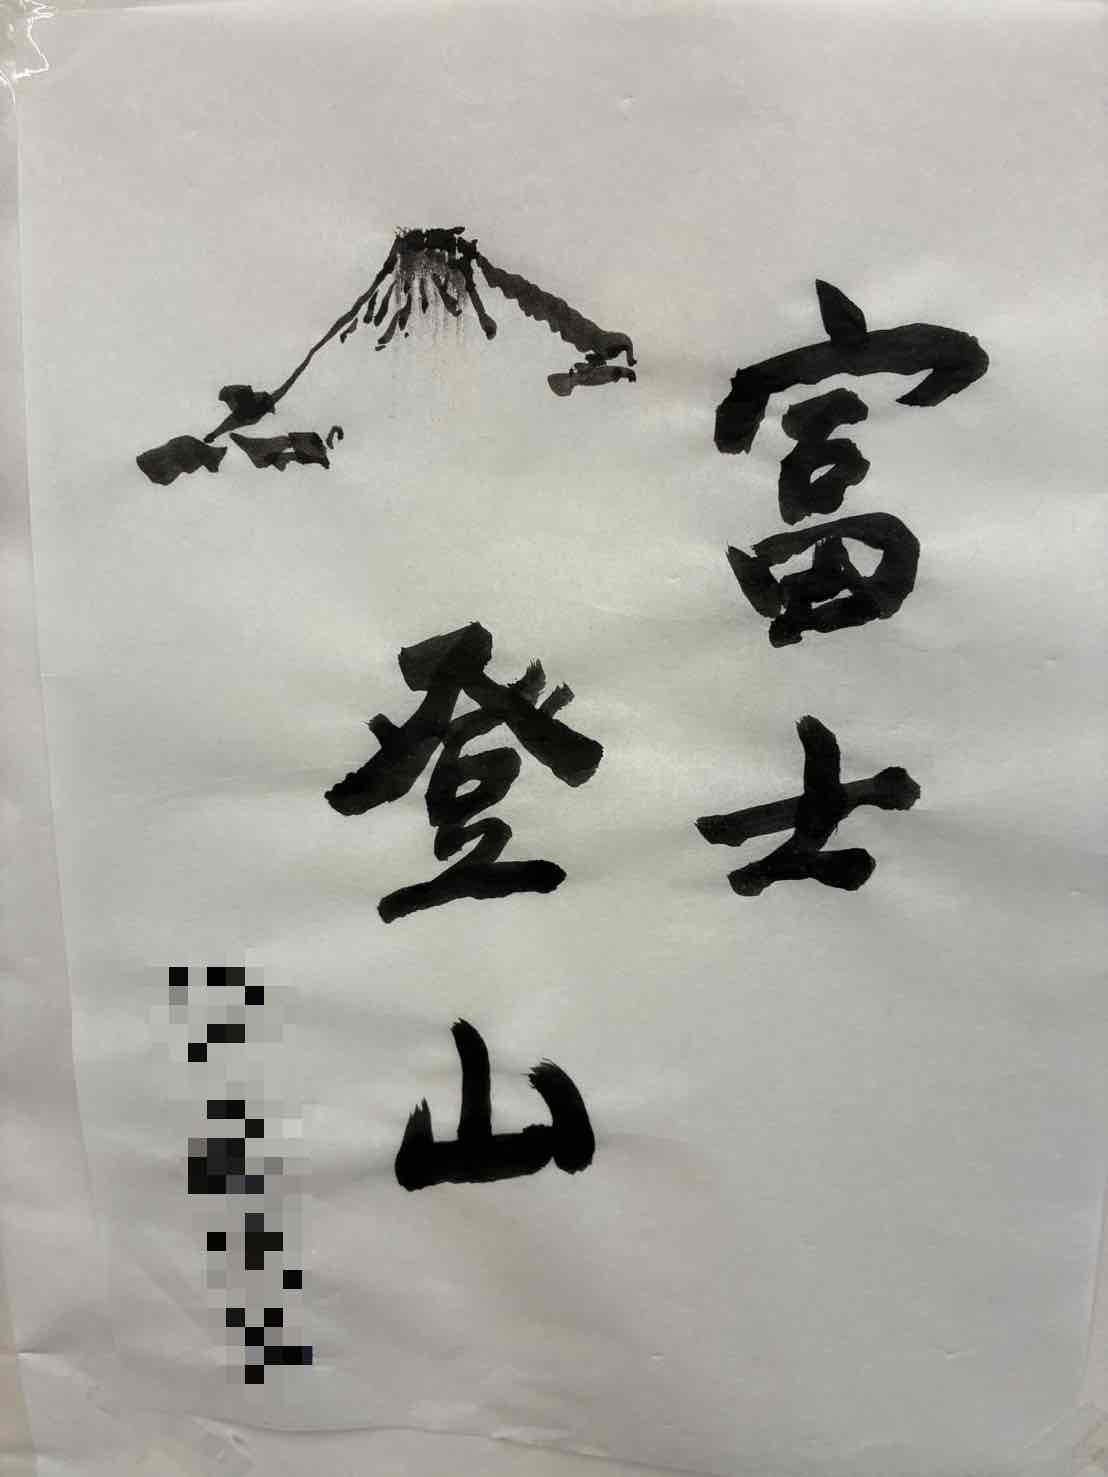 富士
登山